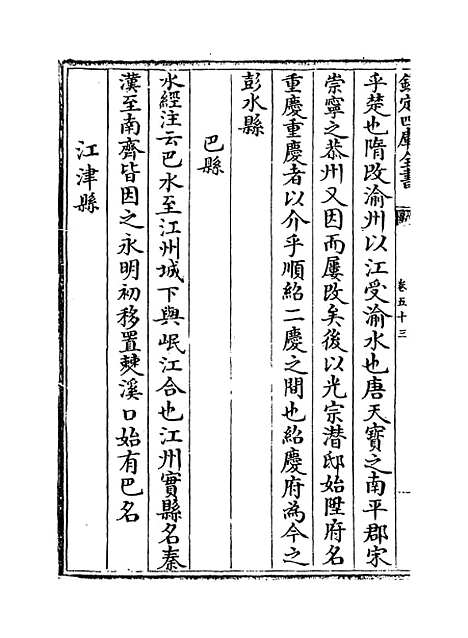 欽定四庫全書
卷五十三
乎楚也隋改渝州以江受渝水也唐天寳之南平郡宋
崇寧之恭州又因而屢改矣後以光宗潜邸始陞府名
重慶重慶者以介乎順紹二慶之間也紹慶府為今之
彭水縣
巴縣
水經注云巴水至江州城下與岷江合也江州實縣名秦
漢至南齊皆因之永明初移置僰溪口始有巴名
江津縣